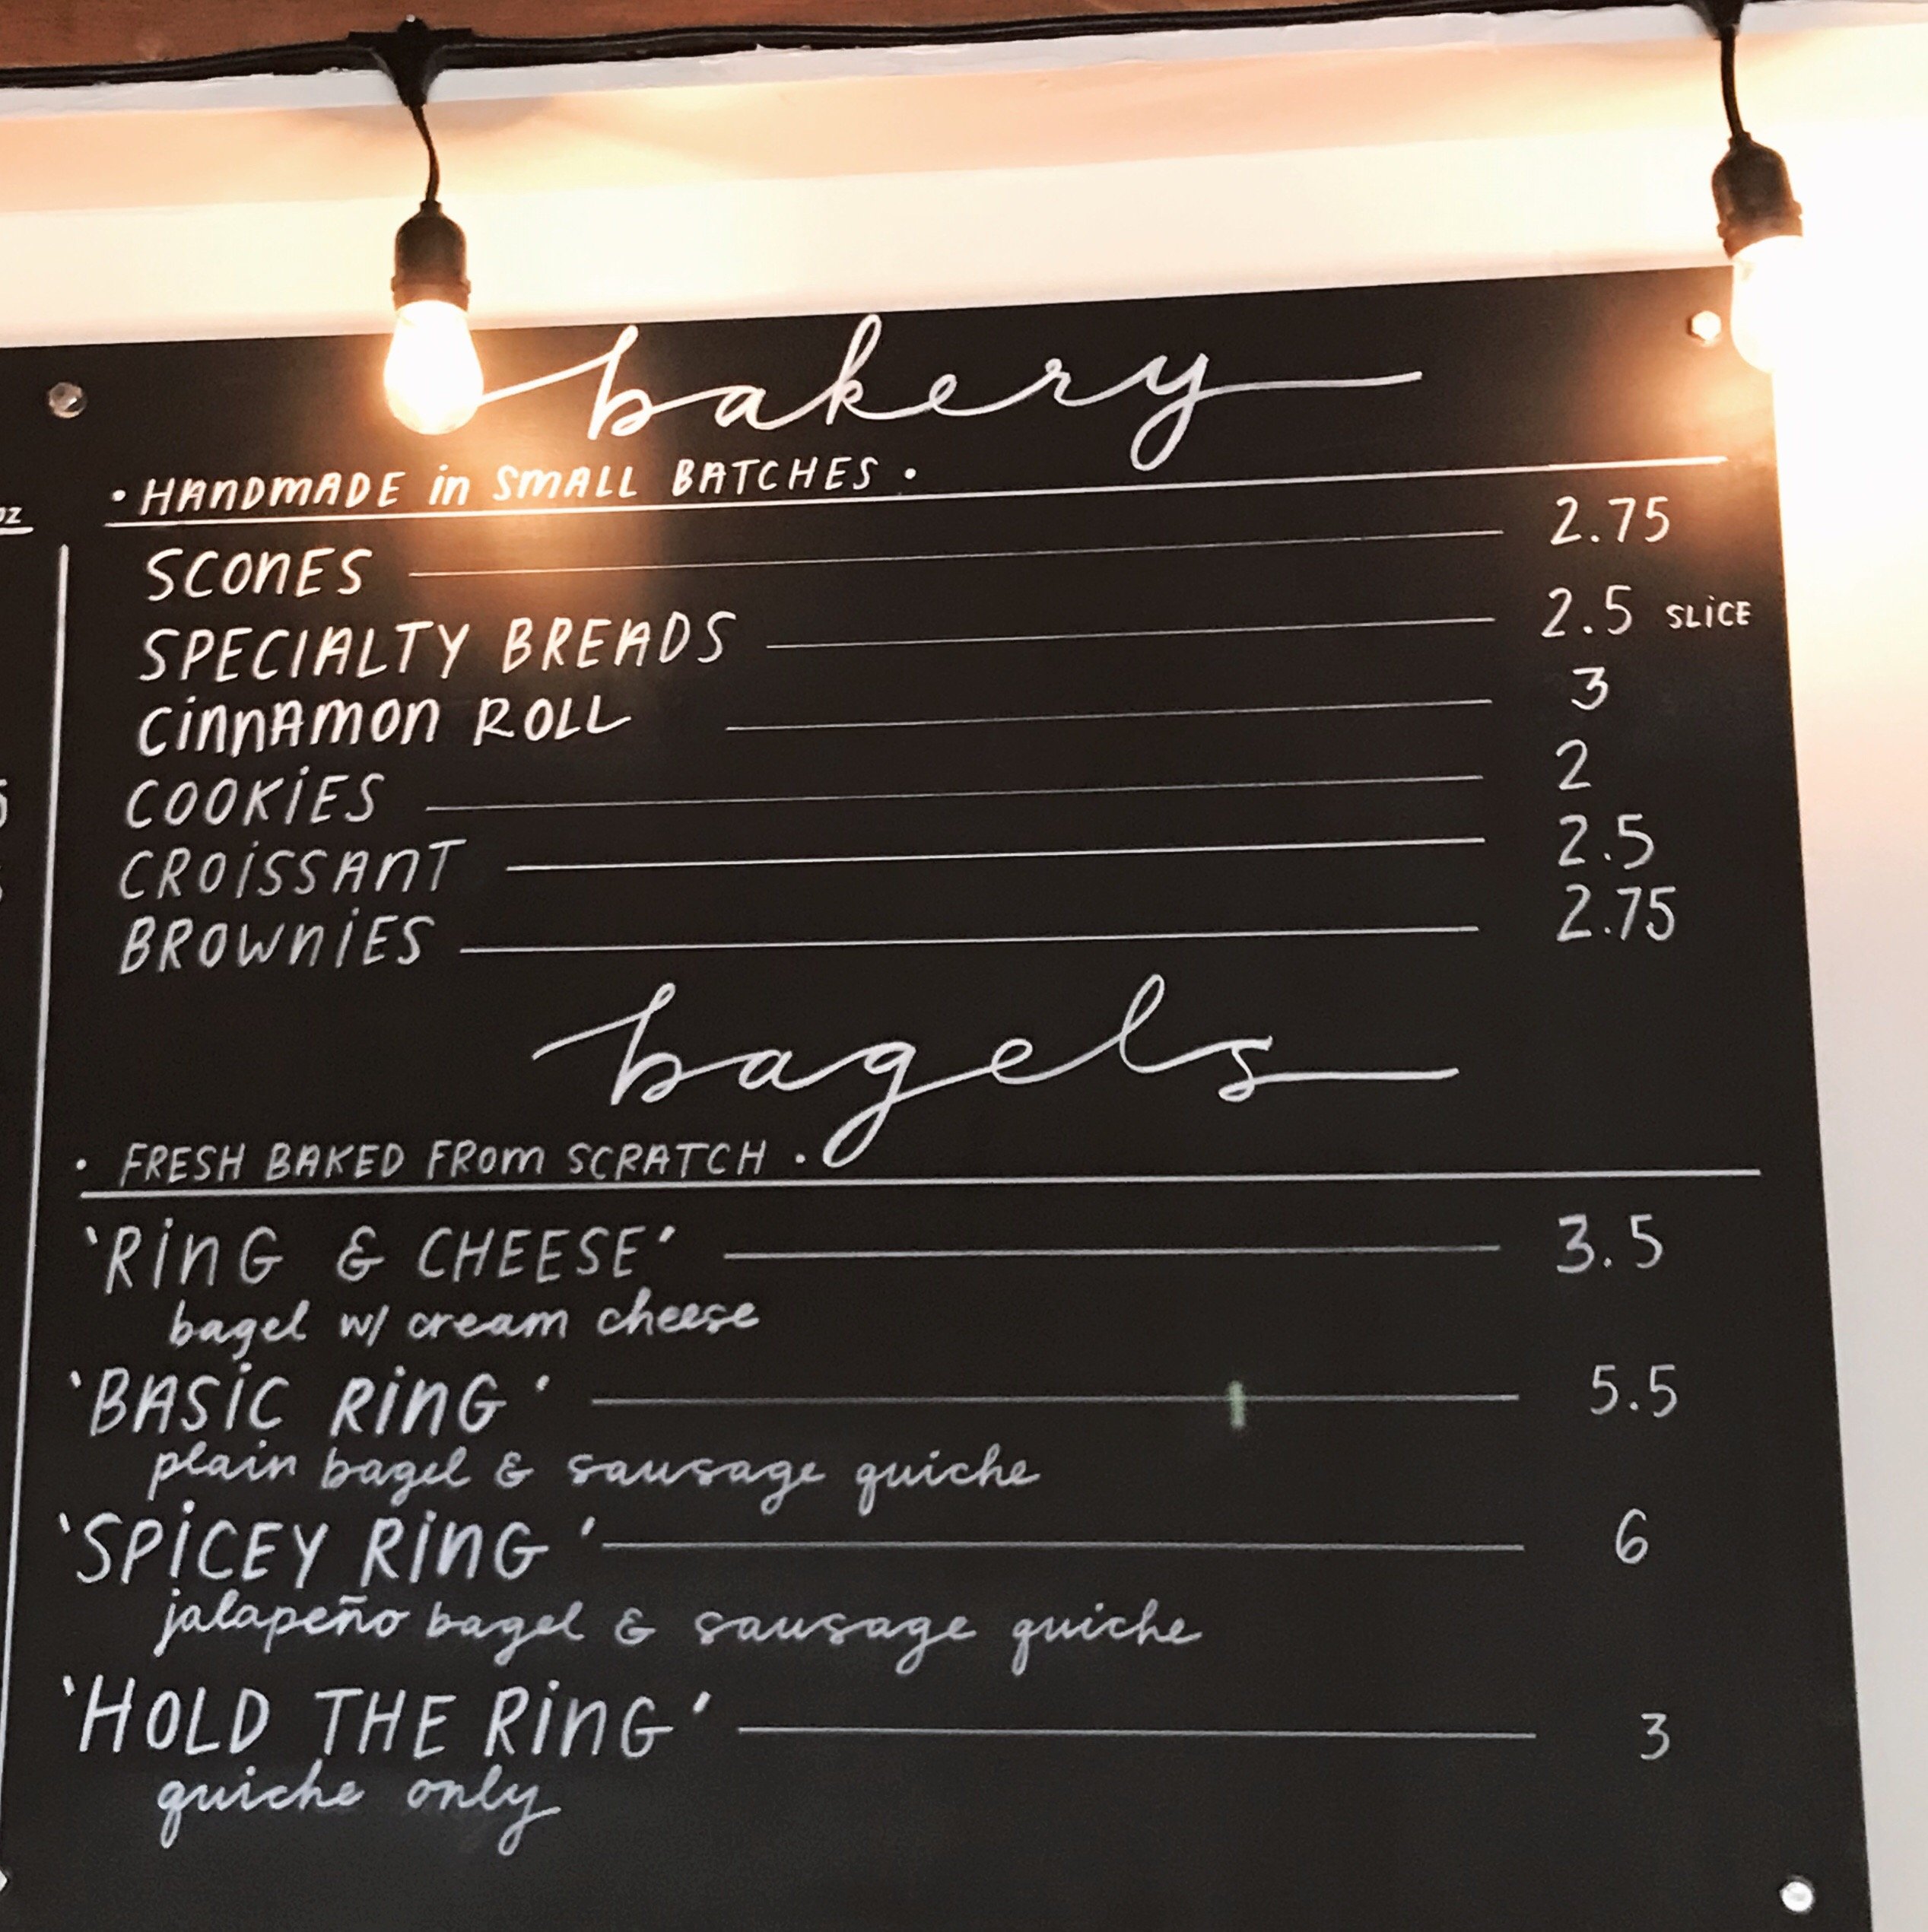 oz
bakery
· HANDMADE in SMALL BATCHES ·
SCONES 2.75
SPECIALTY BREADS 2.5 SLICE
CINNAMON ROLL 3
COOKIES 2
CROISSANT 2.5
BROWNIES 2.75
bagels
· FRESH BAKED FROM SCRATCH ·
'RING & CHEESE' 3.5
bagel w/ cream cheese
'BASIC RING' 5.5
plain bagel & sausage quiche
'SPICEY RING' 6
jalapeño bagel & sausage quiche
'HOLD THE RING' 3
quiche only